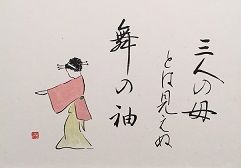 三人の母
とは見えぬ
舞の袖